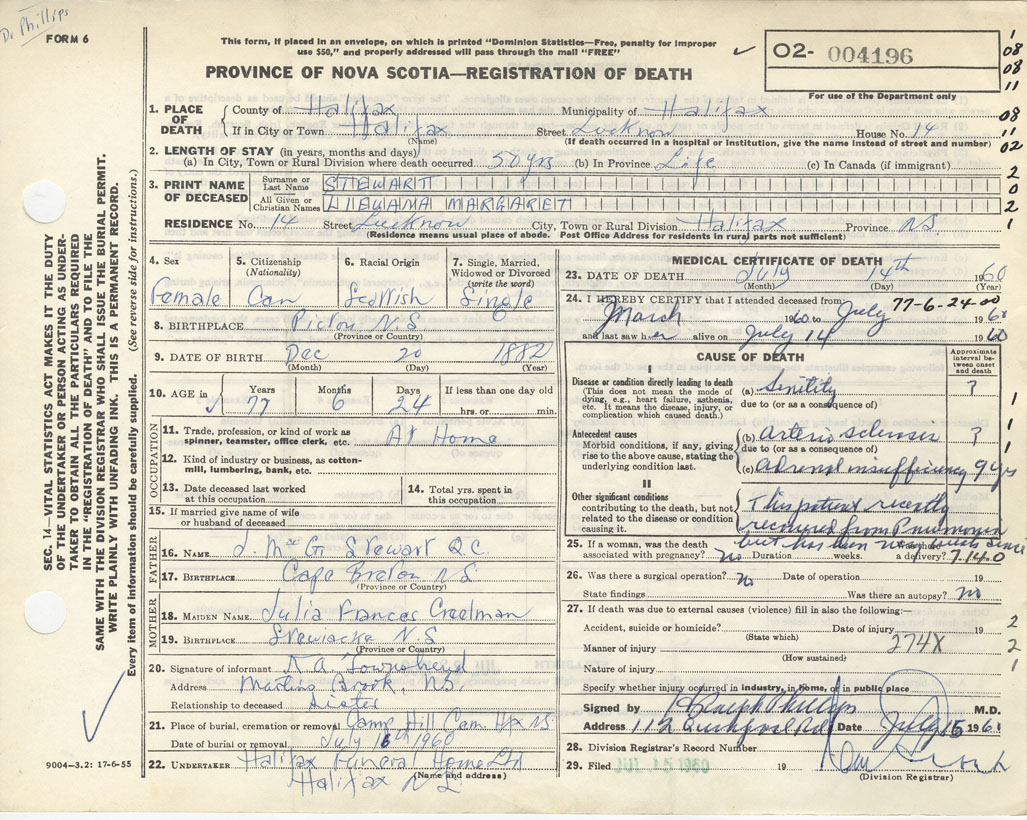 Dr. Phillips
FORM 6
This form, if placed in an envelope, on which is printed "Dominion Statistics—Free, penalty for improper
use $50," and properly addressed will pass through the mail "FREE"
PROVINCE OF NOVA SCOTIA—REGISTRATION OF DEATH
02- 004196
For use of the Department only
1
08
08
11
08
11
02
2
0
2
1
1. PLACE OF DEATH
County of Halifax Municipality of Halifax
If in City or Town Halifax Street Lucknow House No. 14
(Name) (If death occurred in a hospital or institution, give the name instead of street and number)
2. LENGTH OF STAY (in years, months and days)
(a) In City, Town or Rural Division where death occurred 50 yrs (b) In Province Life (c) In Canada (if immigrant)
3. PRINT NAME OF DECEASED
Surname or Last Name STEWART
All Given or Christian Names MARGARET
RESIDENCE No. 14 Street Lucknow City, Town or Rural Division Halifax Province N.S.
(Residence means usual place of abode. Post Office Address for residents in rural parts not sufficient)
SEC. 14—VITAL STATISTICS ACT MAKES IT THE DUTY
OF THE UNDERTAKER OR PERSON ACTING AS UNDER-
TAKER TO OBTAIN ALL THE PARTICULARS REQUIRED
IN THE "REGISTRATION OF DEATH" AND TO FILE THE
SAME WITH THE DIVISION REGISTRAR WHO SHALL ISSUE THE BURIAL PERMIT.
WRITE PLAINLY WITH UNFADING INK. THIS IS A PERMANENT RECORD.
Every item of information should be carefully supplied. (See reverse side for instructions.)
4. Sex Female
5. Citizenship (Nationality) Can
6. Racial Origin Scottish
7. Single, Married, Widowed or Divorced (write the word) Single
8. BIRTHPLACE Pictou N.S.
(Province or Country)
9. DATE OF BIRTH Dec 20 1882
(Month) (Day) (Year)
10. AGE in Years 77 Months 6 Days 24 If less than one day old hrs. or min.
OCCUPATION
11. Trade, profession, or kind of work as spinner, teamster, office clerk, etc. At Home
12. Kind of industry or business, as cotton-mill, lumbering, bank, etc.
13. Date deceased last worked at this occupation
14. Total yrs. spent in this occupation
15. If married give name of wife or husband of deceased
FATHER
16. NAME J. McG Stewart Q.C.
17. BIRTHPLACE Cape Breton N.S.
(Province or Country)
MOTHER
18. MAIDEN NAME Julia Frances Creelman
19. BIRTHPLACE Stewiacke N S
(Province or Country)
20. Signature of informant A. Townshend
Address Martins Brook, N.S.
Relationship to deceased Sister
21. Place of burial, cremation or removal Camp Hill Cem Hfx N.S.
Date of burial or removal July 16th 1960
22. UNDERTAKER Halifax Funeral Home Ltd
(Name and address)
Halifax N S
9004—3.2: 17-6-55
MEDICAL CERTIFICATE OF DEATH
23. DATE OF DEATH July 14th 1960
(Month) (Day) (Year)
24. I HEREBY CERTIFY that I attended deceased from 77-6-24-00
March 1960 to July 1960
and last saw her alive on July 14 1960
CAUSE OF DEATH
Approximate interval between onset and death
I
Disease or condition directly leading to death
(This does not mean the mode of dying, e.g., heart failure, asthenia, etc. It means the disease, injury, or complication which caused death.)
(a) Senility ?
due to (or as a consequence of)
Antecedent causes
Morbid conditions, if any, giving rise to the above cause, stating the underlying condition last.
(b) Arterio sclerosis ?
due to (or as a consequence of)
(c) Adrenal insufficiency 9 yrs
II
Other significant conditions contributing to the death, but not related to the disease or condition causing it.
This patient recently
recovered from Pneumonia
but has been very weak since
25. If a woman, was the death associated with pregnancy? No Duration weeks. Was there a delivery? 7.14.0
26. Was there a surgical operation? No Date of operation 19
State findings Was there an autopsy? No
27. If death was due to external causes (violence) fill in also the following:—
Accident, suicide or homicide? Date of injury 19
(State which)
Manner of injury 274X
(How sustained)
Nature of injury
Specify whether injury occurred in industry, in home, or in public place
Signed by H Ralph Phillips M.D.
Address 112 Rd Date July 15 1961
28. Division Registrar's Record Number
29. Filed JUL 15 1960 19
(Division Registrar)
1
1
1
1
2
2
1